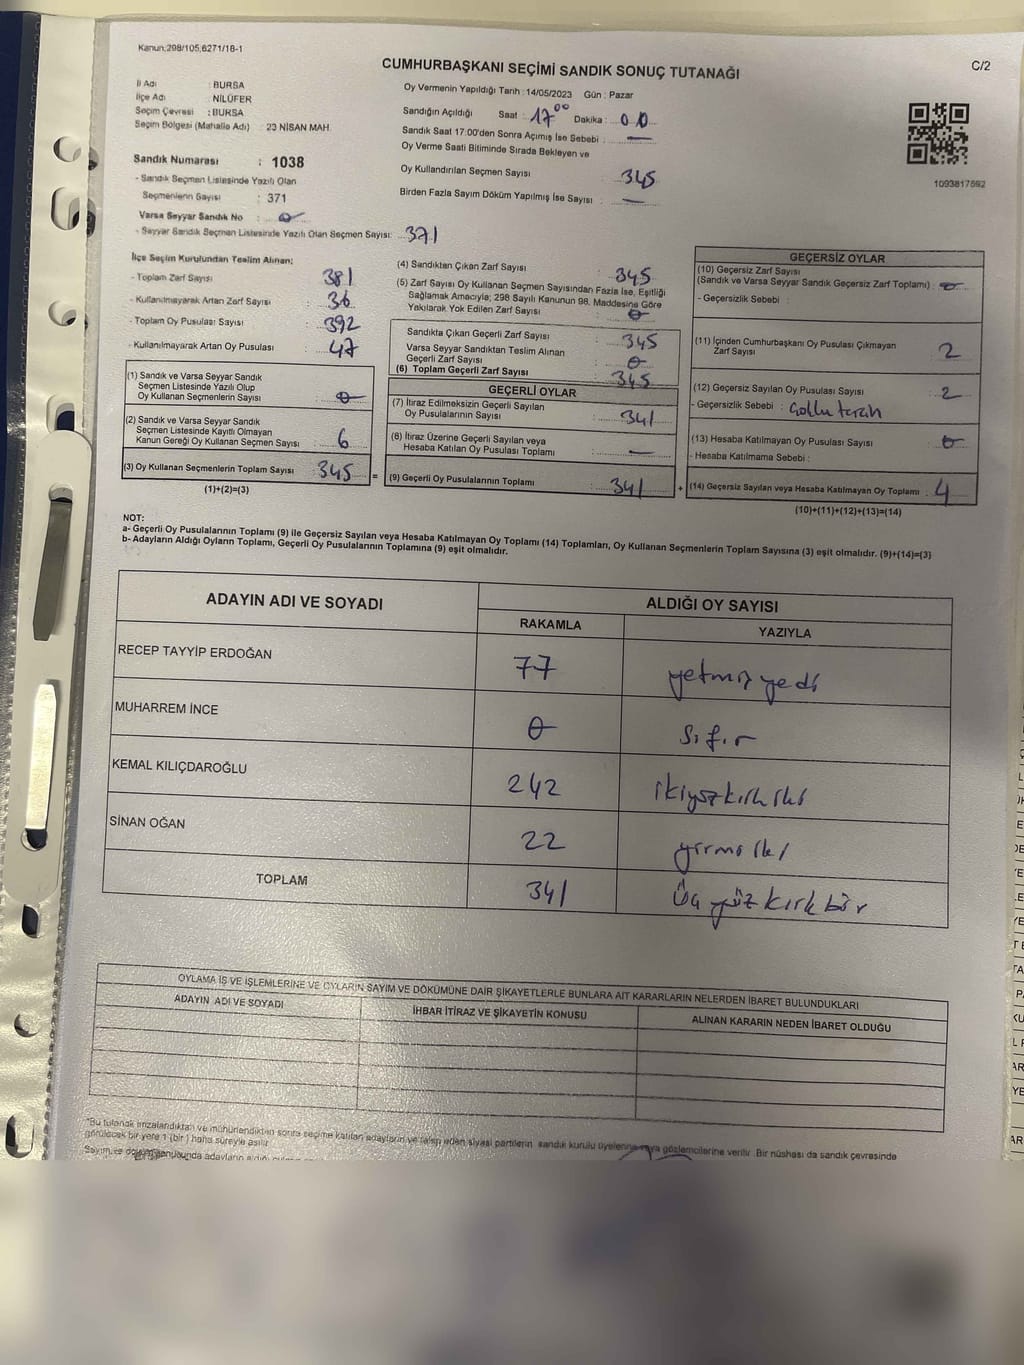 Kanun;298/105,6271/18-1
CUMHURBAŞKANI SEÇİMİ SANDIK SONUÇ TUTANAĞI
C/2
İl Adı : BURSA
İlçe Adı : NİLÜFER
Seçim Çevresi : BURSA
Seçim Bölgesi (Mahalle Adı) : 23 NİSAN MAH.
Oy Vermenin Yapıldığı Tarih : 14/05/2023 Gün : Pazar
Sandığın Açıldığı Saat : 17 00 Dakika : 00
Sandık Saat 17:00'den Sonra Açımış İse Sebebi : —
Oy Verme Saati Bitiminde Sırada Bekleyen ve
Oy Kullandırılan Seçmen Sayısı : 345
Birden Fazla Sayım Döküm Yapılmış İse Sayısı : —
1093817692
Sandık Numarası : 1038
- Sandık Seçmen Listesinde Yazılı Olan
Seçmenlerin Sayısı : 371
Varsa Seyyar Sandık No : 0
- Seyyar Sandık Seçmen Listesinde Yazılı Olan Seçmen Sayısı: 371
İlçe Seçim Kurulundan Teslim Alınan:
- Toplam Zarf Sayısı : 381
- Kullanılmayarak Artan Zarf Sayısı : 36
- Toplam Oy Pusulası Sayısı : 392
- Kullanılmayarak Artan Oy Pusulası : 47
(1) Sandık ve Varsa Seyyar Sandık
Seçmen Listesinde Yazılı Olup
Oy Kullanan Seçmenlerin Sayısı : 0
(2) Sandık ve Varsa Seyyar Sandık
Seçmen Listesinde Kayıtlı Olmayan
Kanun Gereği Oy Kullanan Seçmen Sayısı : 6
(3) Oy Kullanan Seçmenlerin Toplam Sayısı : 345 =
(1)+(2)=(3)
(4) Sandıktan Çıkan Zarf Sayısı : 345
(5) Zarf Sayısı Oy Kullanan Seçmen Sayısından Fazla İse, Eşitliği
Sağlamak Amacıyla; 298 Sayılı Kanunun 98. Maddesine Göre
Yakılarak Yok Edilen Zarf Sayısı : 0
Sandıkta Çıkan Geçerli Zarf Sayısı : 345
Varsa Seyyar Sandıktan Teslim Alınan
Geçerli Zarf Sayısı : 0
(6) Toplam Geçerli Zarf Sayısı : 345
GEÇERLİ OYLAR
(7) İtiraz Edilmeksizin Geçerli Sayılan
Oy Pusulalarının Sayısı : 341
(8) İtiraz Üzerine Geçerli Sayılan veya
Hesaba Katılan Oy Pusulası Toplamı : —
(9) Geçerli Oy Pusulalarının Toplamı : 341 +
GEÇERSİZ OYLAR
(10) Geçersiz Zarf Sayısı
(Sandık ve Varsa Seyyar Sandık Geçersiz Zarf Toplamı) : 0
- Geçersizlik Sebebi :
(11) İçinden Cumhurbaşkanı Oy Pusulası Çıkmayan
Zarf Sayısı 2
(12) Geçersiz Sayılan Oy Pusulası Sayısı : 2
- Geçersizlik Sebebi :
(13) Hesaba Katılmayan Oy Pusulası Sayısı : 0
- Hesaba Katılmama Sebebi :
(14) Geçersiz Sayılan veya Hesaba Katılmayan Oy Toplamı : 4
(10)+(11)+(12)+(13)=(14)
NOT:
a- Geçerli Oy Pusulalarının Toplamı (9) ile Geçersiz Sayılan veya Hesaba Katılmayan Oy Toplamı (14) Toplamları, Oy Kullanan Seçmenlerin Toplam Sayısına (3) eşit olmalıdır. (9)+(14)=(3)
b- Adayların Aldığı Oyların Toplamı, Geçerli Oy Pusulalarının Toplamına (9) eşit olmalıdır.
ADAYIN ADI VE SOYADI
ALDIĞI OY SAYISI
RAKAMLA YAZIYLA
RECEP TAYYİP ERDOĞAN 77 yetmiş yedi
MUHARREM İNCE 0 Sıfır
KEMAL KILIÇDAROĞLU 242 ikiyüzkırk iki
SİNAN OĞAN 22 yirmi iki
TOPLAM 341 Üç yüz kırk bir
OYLAMA İŞ VE İŞLEMLERİNE VE OYLARIN SAYIM VE DÖKÜMÜNE DAİR ŞİKAYETLERLE BUNLARA AİT KARARLARIN NELERDEN İBARET BULUNDUKLARI
ADAYIN ADI VE SOYADI
İHBAR İTİRAZ VE ŞİKAYETİN KONUSU
ALINAN KARARIN NEDEN İBARET OLDUĞU
"Bu tutanak imzalandıktan ve mühürlendikten sonra seçime katılan adayların ve talep eden siyasi partilerin sandık kurulu üyelerine veya gözlemcilerine verilir. Bir nüshası da sandık çevresinde
görülecek bir yere 1 (bir) hafta süreyle asılır.